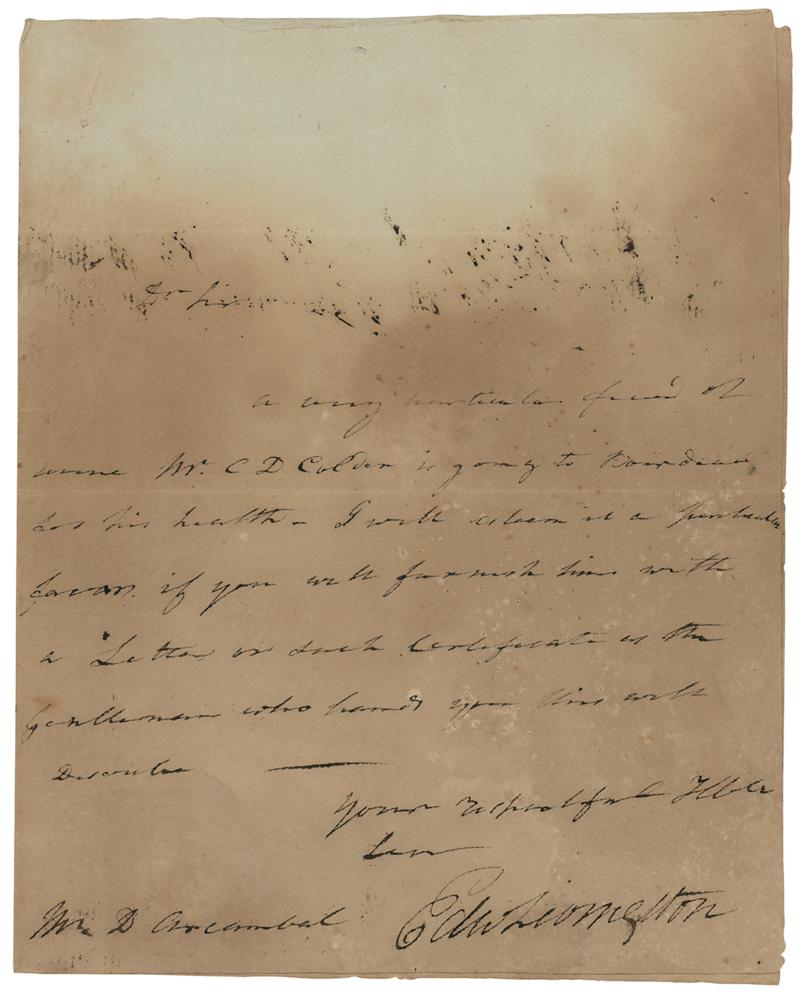 Dr Sir
a very particular friend of
mine Mr. C D Colden is going to Bourdeaux
for his health – I will esteem it a particular
favor if you will furnish him with
a Letter or such Certificate as the
Gentleman who hands you this will
Describe ———
Your respectful Hble
Serv
Mr D Arcambal Edw Livingston